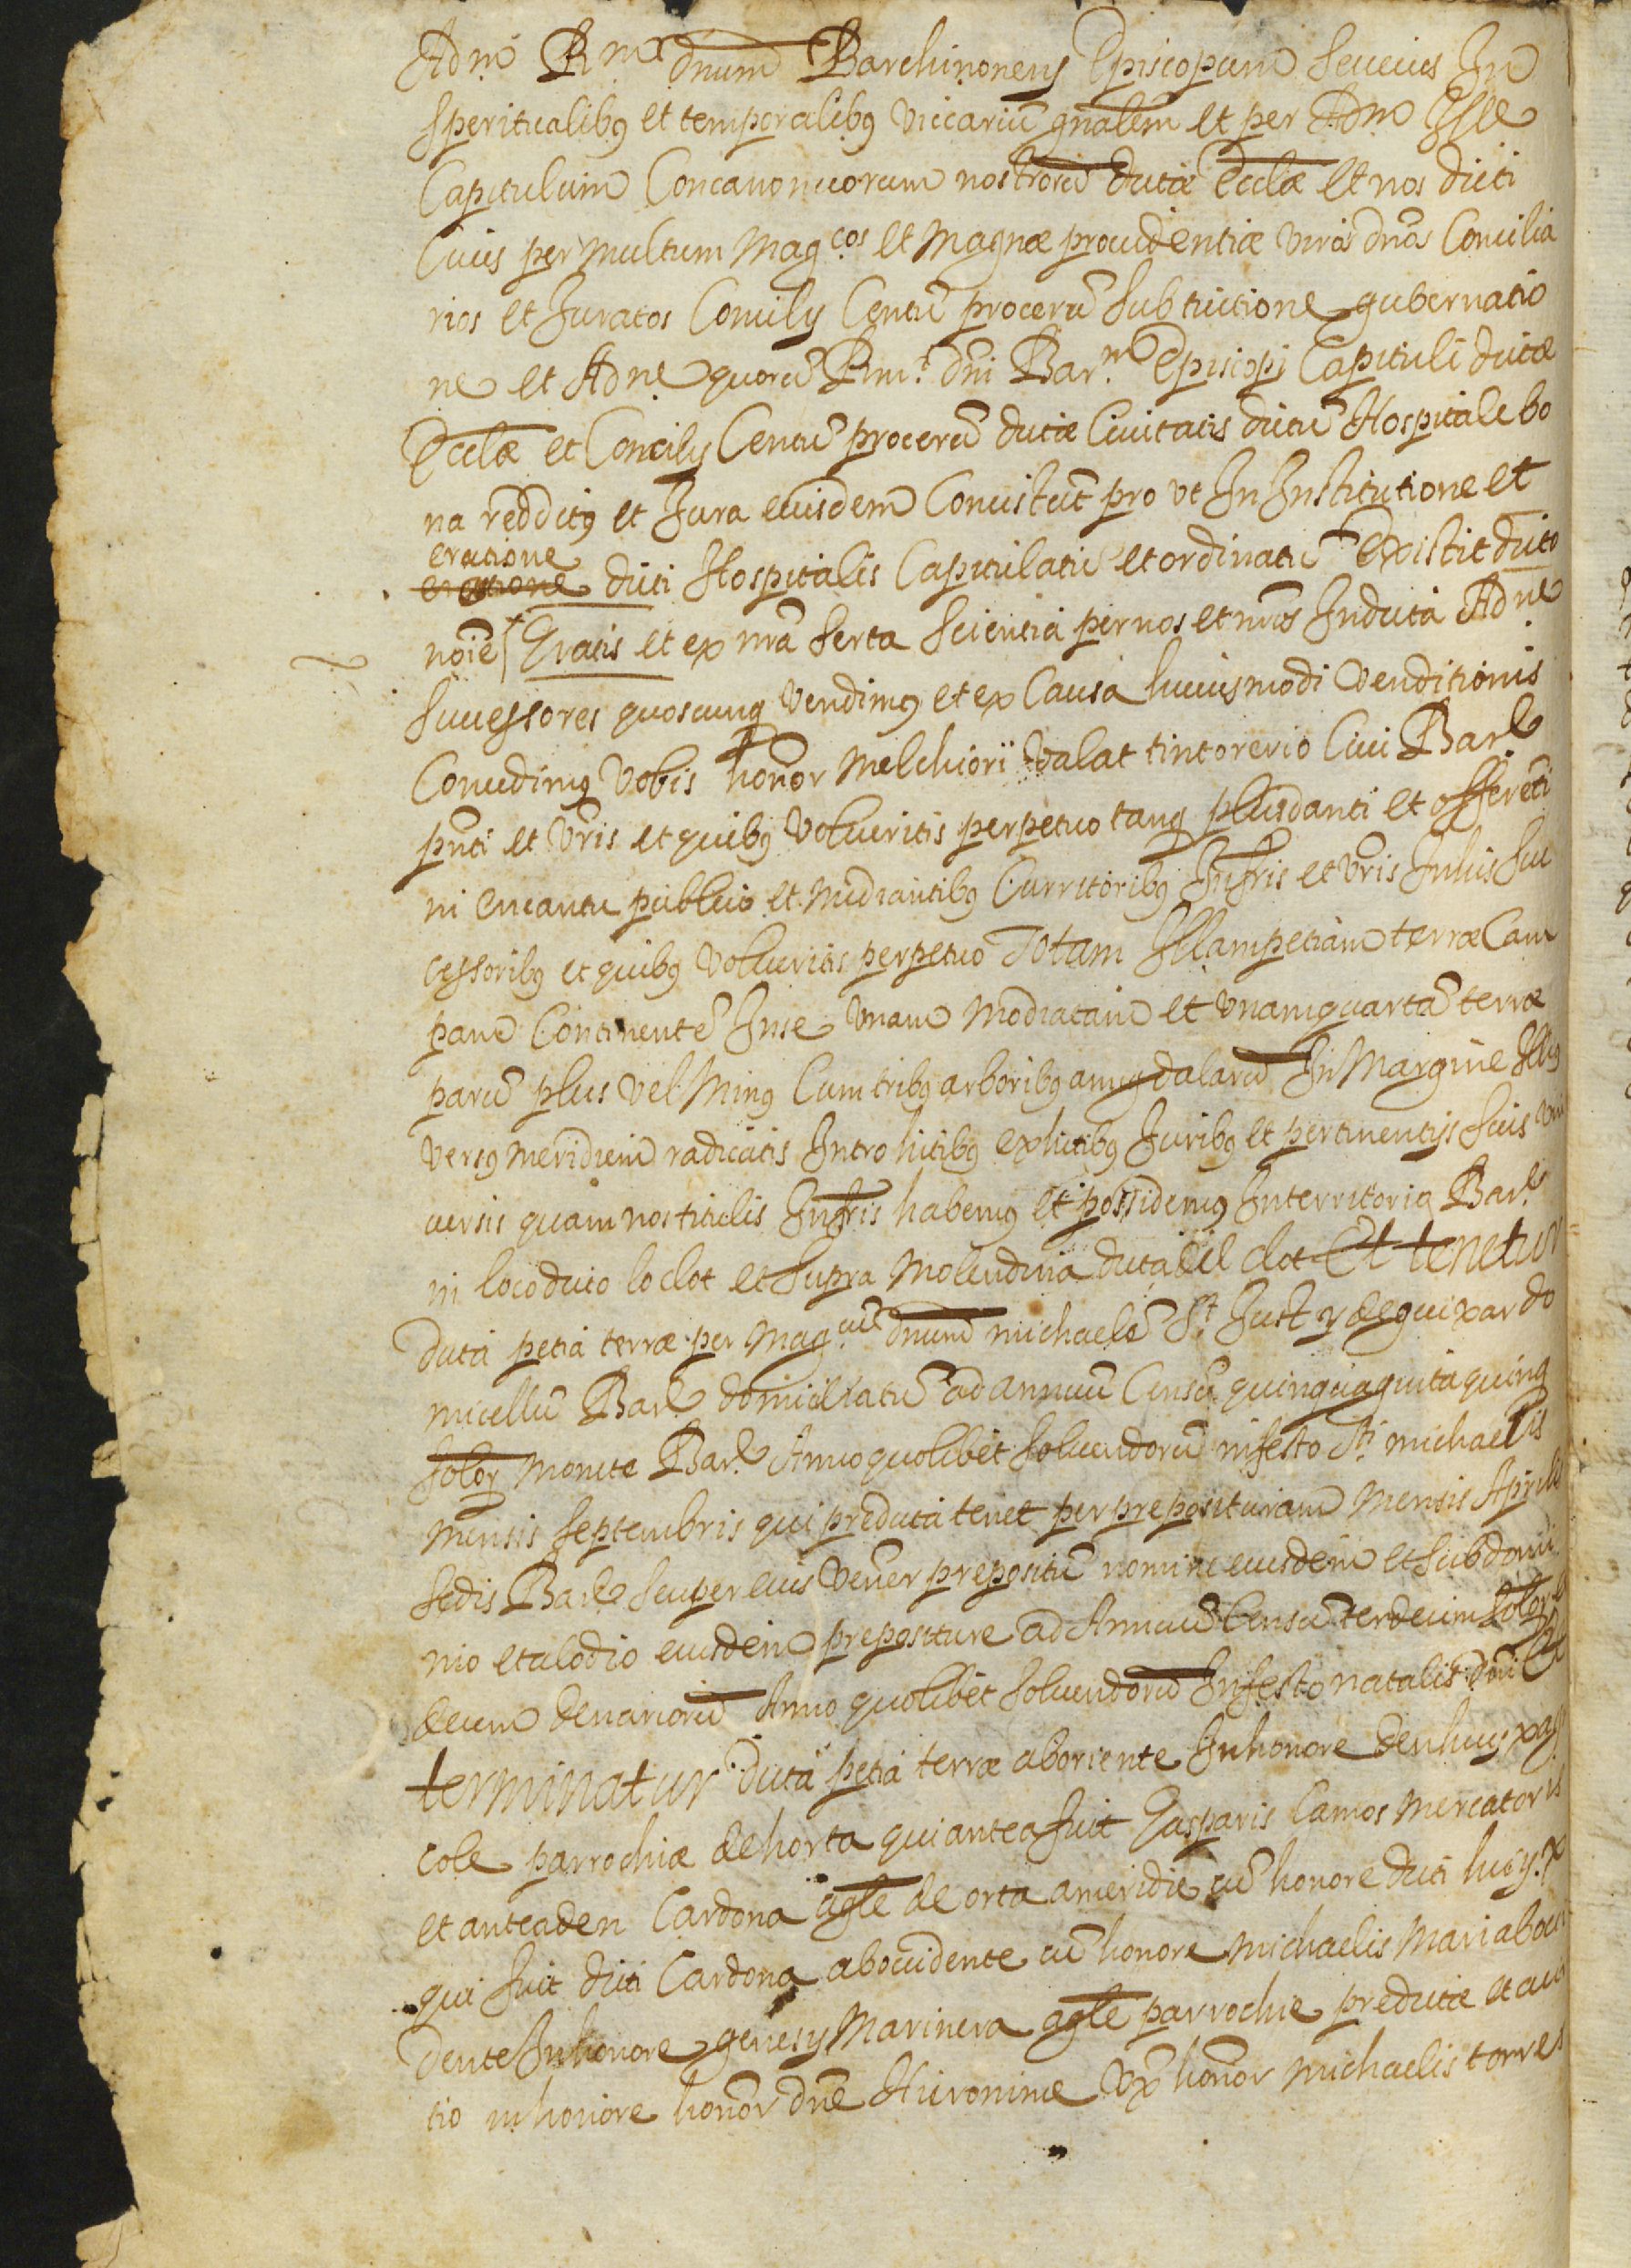 Adm Rm dnum Barchinonens Episcopum seu eius In
speritualibus et temporalibus viccariũ gnalem et per Adm Ille
Capitulum Concanonicorum nostrorũ dictæ Ecclæ et nos dicti
Cives per multum Mag.cos et Magnæ providentiæ viros dnos Concilia
rios et Juratos Concilij Centũ procerũ sub tuitione gubernatio
ne et Adne quorũ Rm.i dni Bar.n Episcopi Capituli dictæ
Ecclæ et Concilij Centũ procerũ dictæ Civitatis dictũ Hospitale bo
na redditus et Jura eiusdem Consistũt pro ut In Institutione et
erectione
dicti Hospitalis Capitulatũ et ordinatũ Existit dicto
noiẽ Gratis et ex nra serta scientia per nos et nros In dicta Adne
successores quoscunq vendimus et ex Causa huiusmodi venditionis
Concedimus vobis honor Melchiori Valat tintorerio Civi Bar.e
pnti et vris et quibus volueritis perpetuo tanq plus danti et offerẽti
in encantu publico et Mediantibus Curritoribus Infris et vris In his suc
cessoribus et quibus volueritis perpetuo Totam Illam petiam terræ Cam
pam Continentẽ In se unam Modiatam et unam quartã terræ
parũ plus vel Minus Cum tribus arboribus amigdalarũ In Margine Illius
versus meridiem radicatis Introhitibus exhitibus Juribus et pertinentijs suis uni
versis quam nos titulis Infris habemus et possidemus In territorio Bar.e
in loco dicto lo clot et supra Molendina dicta del clot Et tenetur
dicta petia terræ per Mag.cũ dnum michaelẽ St Just y de guixar do
micellũ Bar.e domiciliatũ ad annuũ Censũ quinquaginta quinq
solor Monete Bar.e Anno quolibet solvendorũ in festo Sti michaelis
Mensis septembris qui predicta tenet per preposituram Mensis Aprilis
sedis Bar.e seu per eius vener prepositũ nomine eiusdem et sub domi
nio et alodio eiusdem prepositure ad Annuũ Censũ terdecim solor et
decem denariorũ Anno quolibet solvendorũ In festo natalis dni Et
terminatur dicta petia terræ ab oriente In honore den lluy x agri
cole parrochiæ de horta qui antea fuit Gasparis Camos Mercatoris
et antea den Cardona agle de orta a meridie cũ honore dicti lluy x
qui fuit dicti Cardona ab occidente cũ honore Michaelis Mari ab occi
dente In honore genesy Marinera agle parrochie predictæ et a cir
tio in honore honor dne Hieronime ux honor Michaelis torres